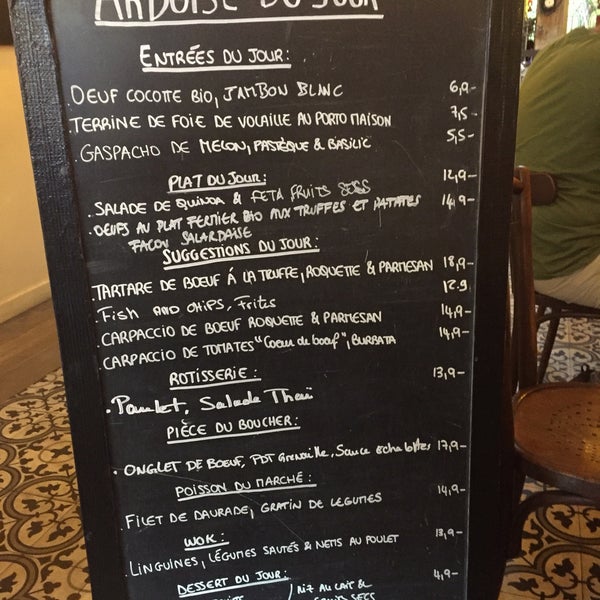 ARDOISE DU JOUR
ENTRÉES DU JOUR:
OEUF COCOTTE BIO, JAMBON BLANC 6,9-
TERRINE DE FOIE DE VOLAILLE AU PORTO MAISON 7,5-
GASPACHO DE MELON, PASTÈQUE & BASILIC 5,5-
PLAT DU JOUR: 12,9-
. SALADE DE QUINOA & FETA FRUITS SECS 14,9-
. OEUFS AU PLAT FERMIER BIO AUX TRUFFES ET PATATES
FAÇON SALARDAISE
SUGGESTIONS DU JOUR:
. TARTARE DE BOEUF À LA TRUFFE, ROQUETTE & PARMESAN 18,9-
. FISH AND CHIPS, Frits 12.9
. CARPACCIO DE BOEUF ROQUETTE & PARMESAN 14,9-
. CARPACCIO DE TOMATES "Coeur de boeuf", BURRATA 14,9-
ROTISSERIE: 13,9-
. Poulet, Salade Thaï
PIÈCE DU BOUCHER:
. ONGLET DE BOEUF, PDT Grenaille, Sauce échalottes 17,9-
POISSON DU MARCHÉ:
. FILET DE DAURADE, GRATIN DE LEGUMES 14,9-
WOK:
. LINGUINES, LÉGUMES SAUTÉS & NEMS AU POULET 13,9-
DESSERT DU JOUR: 4,9-
/ RIZ AU LAIT &
SECS